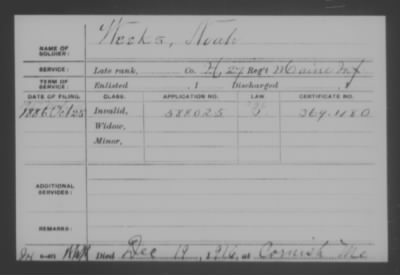 NAME OF SOLDIER: Weeks, Noah
SERVICE: Late rank, Co. H, 27 Reg't Maine Inf
TERM OF SERVICE: Enlisted , 1 Discharged , 1
DATE OF FILING. CLASS. APPLICATION NO. LAW. CERTIFICATE NO.
1886 Oct 25 Invalid, 588025 369.1180
Widow,
Minor,
ADDITIONAL SERVICES:
REMARKS:
Died Dec 19, 1916, at Cornish Me